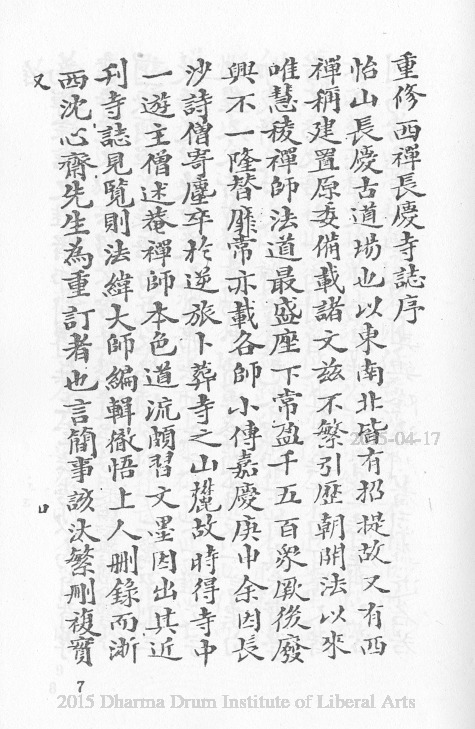 重修西禪長慶寺誌序
怡山長慶古道場也以東南北皆有招提故又有西
禪稱建置原委備載諸文茲不繁引歷朝開法以來
唯慧稜禪師法道最盛座下常盈千五百眾厥後廢
興不一隆替靡常亦載各師小傳嘉慶庚申余因長
沙詩僧寄塵卒於逆旅卜葬寺之山麓故時得寺中
一遊主僧述菴禪師本色道流頗習文墨因出其近
刊寺誌見覽則法緯大師編輯徹悟上人刪錄而浙
西沈心齋先生為重訂者也言簡事該汰繁刪複實
又
口
7
2015-04-17
2015 Dharma Drum Institute of Liberal Arts